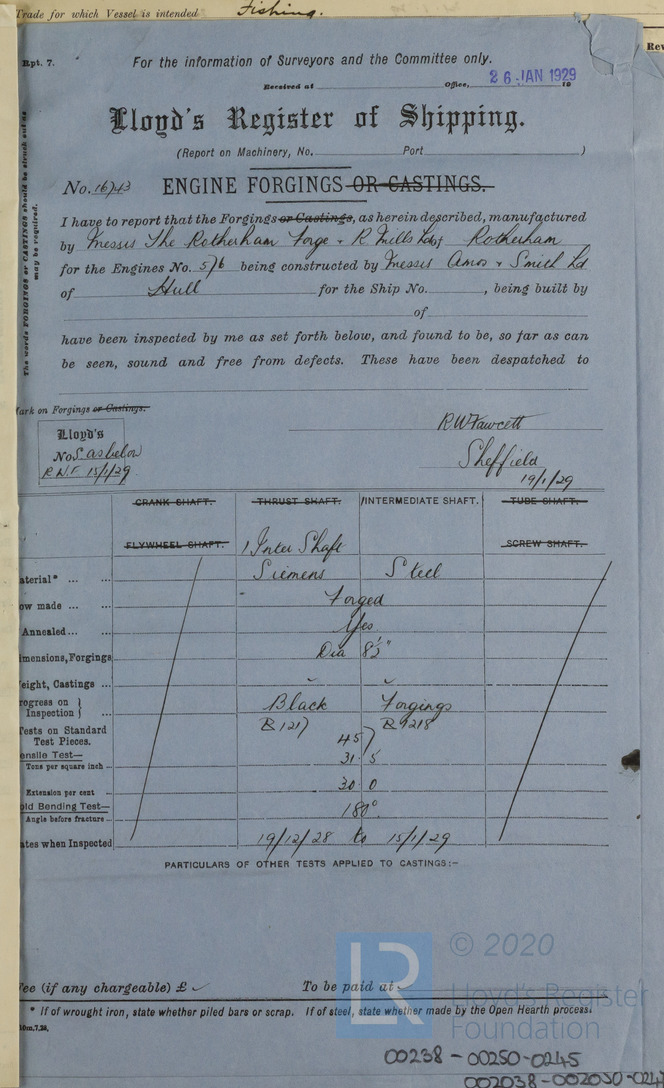 Trade for which Vessel is intended Fishing.
Rev
Rpt. 7.
For the information of Surveyors and the Committee only.
Received at Office, 26 JAN 1929 19
Lloyd's Register of Shipping.
(Report on Machinery, No. Port )
No. 16743 ENGINE FORGINGS OR CASTINGS.
The words FORGINGS or CASTINGS should be struck out as may be required.
I have to report that the Forgings or Castings, as herein described, manufactured
by Messrs The Rotherham Forge & R. Mills Ld of Rotherham
for the Engines No. 576 being constructed by Messrs Amos & Smith Ld
of Hull for the Ship No. , being built by
of
have been inspected by me as set forth below, and found to be, so far as can
be seen, sound and free from defects. These have been despatched to
ark on Forgings or Castings.
Lloyd's
Nos. as below
R.W.F. 15/1/29
R W Fawcett
Sheffield
19/1/29
CRANK SHAFT. THRUST SHAFT. INTERMEDIATE SHAFT. TUBE SHAFT.
FLYWHEEL SHAFT. 1 Inter Shaft SCREW SHAFT.
aterial* ... ... Siemens Steel
ow made ... ... Forged
Annealed ... ... Yes
imensions, Forgings Dia 8½"
eight, Castings ...
rogress on Inspection } Black Forgings
ests on Standard Test Pieces. B1217 B9218
ensile Test— 45
Tons per square inch 31.5
Extension per cent 30.0
old Bending Test—
Angle before fracture 180°.
ates when Inspected 19/12/28 to 15/1/29
PARTICULARS OF OTHER TESTS APPLIED TO CASTINGS:-
ee (if any chargeable) £ To be paid at
* If of wrought iron, state whether piled bars or scrap. If of steel, state whether made by the Open Hearth process.
10m,7,28.
LR
© 2020
Lloyd's Register
Foundation
00238-00250-0245
002038-002050-024